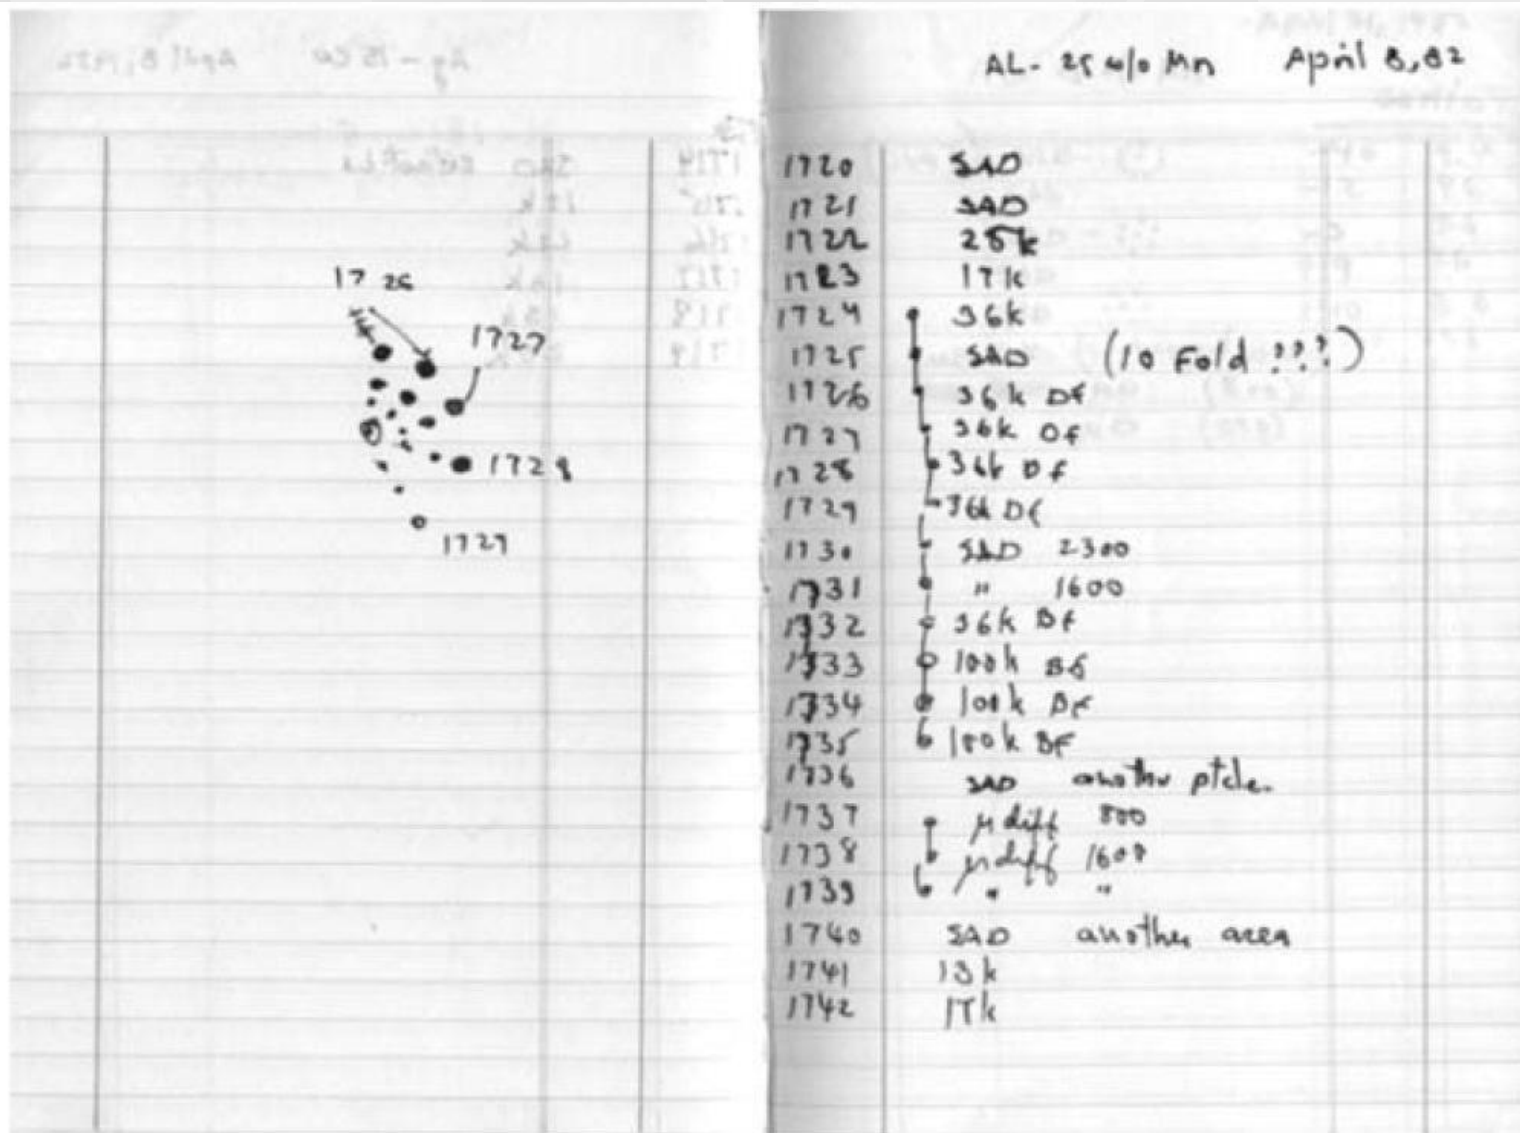 AL- 25 w/o Mn April 8, 82
1726
1727
1728
1729
1720 SAD
1721 SAD
1722 25k
1723 17k
1724 36k
1725 SAD (10 Fold ???)
1726 36k DF
1727 36k DF
1728 36k DF
1729 36k DF
1730 SAD 2300
1731 " 1600
1732 36k BF
1733 100k BF
1734 100k DF
1735 BF
1736 SAD another ptcle.
1737 μ diff 800
1738 μ diff 1600
1739 " "
1740 SAD another area
1741 13k
1742 17k